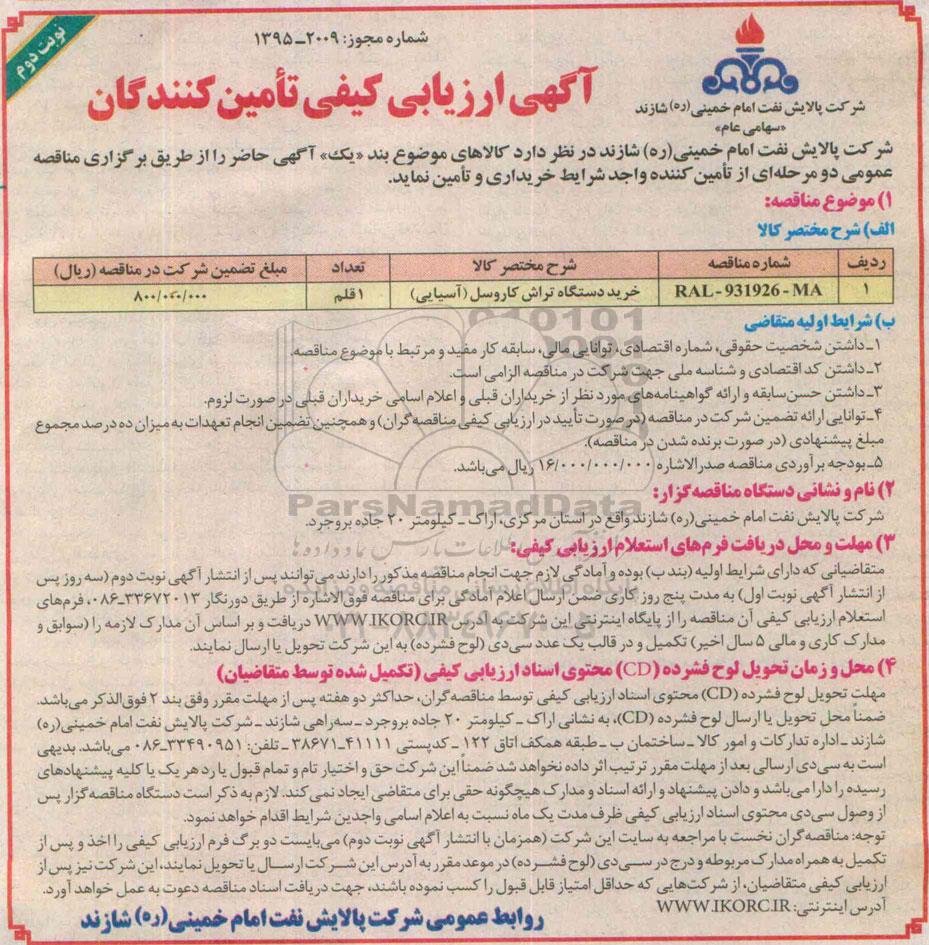 نوبت دوم
شماره مجوز: ۲۰۰۹ـ۱۳۹۵
شرکت پالایش نفت امام خمینی(ره) شازند
«سهامی عام»
آگهی ارزیابی کیفی تأمین کنندگان
شرکت پالایش نفت امام خمینی(ره) شازند در نظر دارد کالاهای موضوع بند «یک» آگهی حاضر را از طریق برگزاری مناقصه
عمومی دو مرحله‌ای از تأمین کننده واجد شرایط خریداری و تأمین نماید.
۱) موضوع مناقصه:
الف) شرح مختصر کالا
ردیف شماره مناقصه شرح مختصر کالا تعداد مبلغ تضمین شرکت در مناقصه (ریال)
۱ RAL - 931926 - MA خرید دستگاه تراش کاروسل (آسیایی) ۱ قلم ۸۰۰/۰۰۰/۰۰۰
ب) شرایط اولیه متقاضی
۱ـ داشتن شخصیت حقوقی، شماره اقتصادی، توانایی مالی، سابقه کار مفید و مرتبط با موضوع مناقصه.
۲ـ داشتن کد اقتصادی و شناسه ملی جهت شرکت در مناقصه الزامی است.
۳ـ داشتن حسن سابقه و ارائه گواهینامه‌های مورد نظر از خریداران قبلی و اعلام اسامی خریداران قبلی در صورت لزوم.
۴ـ توانایی ارائه تضمین شرکت در مناقصه (در صورت تأیید در ارزیابی کیفی مناقصه گران) و همچنین تضمین انجام تعهدات به میزان ده درصد مجموع
مبلغ پیشنهادی (در صورت برنده شدن در مناقصه).
۵ـ بودجه برآوردی مناقصه صدرالاشاره ۱۶/۰۰۰/۰۰۰/۰۰۰ ریال می‌باشد.
ParsNamadData
۲) نام و نشانی دستگاه مناقصه گزار:
شرکت پالایش نفت امام خمینی(ره) شازند واقع در استان مرکزی، اراک ـ کیلومتر ۲۰ جاده بروجرد.
۳) مهلت و محل دریافت فرم‌های استعلام ارزیابی کیفی:
متقاضیانی که دارای شرایط اولیه (بند ب) بوده و آمادگی لازم جهت انجام مناقصه مذکور را دارند می‌توانند پس از انتشار آگهی نوبت دوم (سه روز پس
از انتشار آگهی نوبت اول) به مدت پنج روز کاری ضمن ارسال اعلام آمادگی برای مناقصه فوق‌الاشاره از طریق دورنگار ۳۳۶۷۲۰۱۳ـ۰۸۶، فرم‌های
استعلام ارزیابی کیفی آن مناقصه را از پایگاه اینترنتی این شرکت به آدرس WWW.IKORC.IR دریافت و بر اساس آن مدارک لازمه را (سوابق و
مدارک کاری و مالی ۵ سال اخیر) تکمیل و در قالب یک عدد سی‌دی (لوح فشرده) به این شرکت تحویل یا ارسال نمایند.
۴) محل و زمان تحویل لوح فشرده (CD) محتوی اسناد ارزیابی کیفی (تکمیل شده توسط متقاضیان)
مهلت تحویل لوح فشرده (CD) محتوی اسناد ارزیابی کیفی توسط مناقصه گران، حداکثر دو هفته پس از مهلت مقرر وفق بند ۲ فوق‌الذکر می‌باشد.
ضمناً محل تحویل یا ارسال لوح فشرده (CD)، به نشانی اراک ـ کیلومتر ۲۰ جاده بروجرد ـ سه‌راهی شازند ـ شرکت پالایش نفت امام خمینی(ره)
شازند ـ اداره تدارکات و امور کالا ـ ساختمان ب ـ طبقه همکف اتاق ۱۲۲ ـ کدپستی ۴۱۱۱۱ـ۳۸۶۷۱ ـ تلفن: ۳۳۴۹۰۹۵۱ـ۰۸۶ می‌باشد. بدیهی
است به سی‌دی ارسالی بعد از مهلت مقرر ترتیب اثر داده نخواهد شد ضمناً این شرکت حق و اختیار تام و تمام قبول یا رد هر یک یا کلیه پیشنهادهای
رسیده را دارا می‌باشد و دادن پیشنهاد و ارائه اسناد و مدارک هیچگونه حقی برای متقاضی ایجاد نمی‌کند. لازم به ذکر است دستگاه مناقصه گزار پس
از وصول سی‌دی محتوی اسناد ارزیابی کیفی ظرف مدت یک ماه نسبت به اعلام اسامی واجدین شرایط اقدام خواهد نمود.
توجه: مناقصه گران نخست با مراجعه به سایت این شرکت (همزمان با انتشار آگهی نوبت دوم) می‌بایست دو برگ فرم ارزیابی کیفی را اخذ و پس از
تکمیل به همراه مدارک مربوطه و درج در سی‌دی (لوح فشرده) در موعد مقرر به آدرس این شرکت ارسال یا تحویل نمایند، این شرکت نیز پس از
ارزیابی کیفی متقاضیان، از شرکت‌هایی که حداقل امتیاز قابل قبول را کسب نموده باشند، جهت دریافت اسناد مناقصه دعوت به عمل خواهد آورد.
آدرس اینترنتی: WWW.IKORC.IR
روابط عمومی شرکت پالایش نفت امام خمینی(ره) شازند